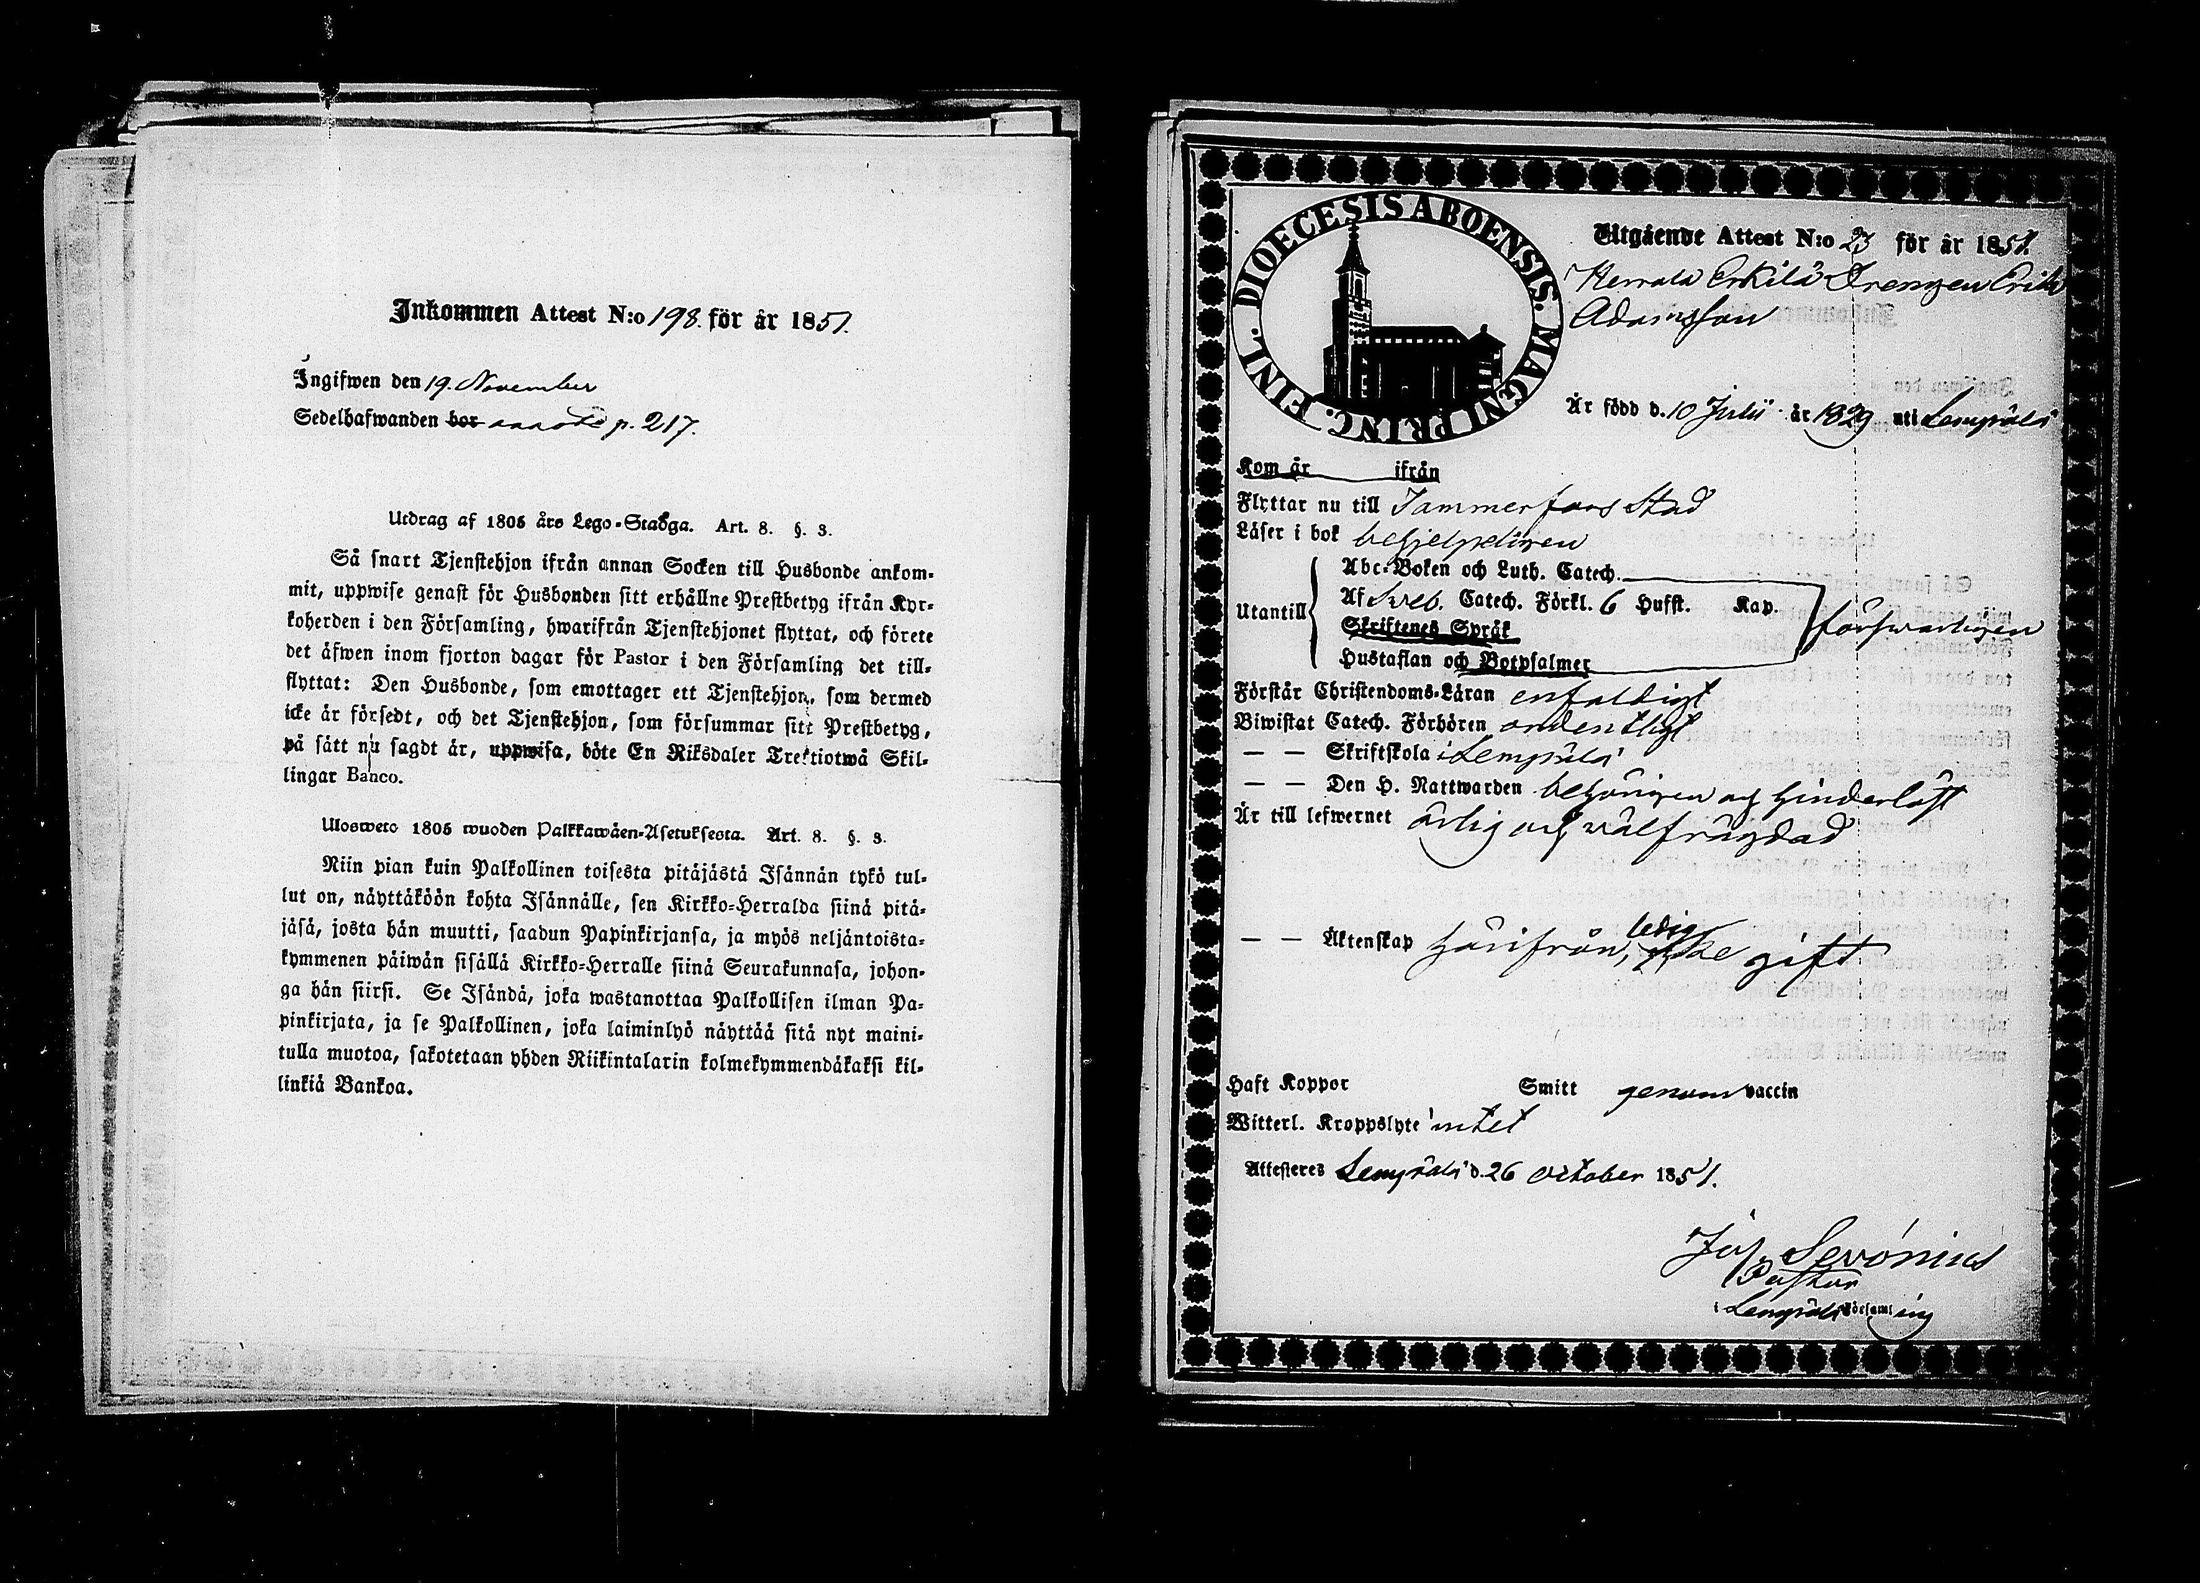 Inkommen Attest N:o 198. för år 1851.
Ingifwen den 19. November
Sedelhafwanden bor p. 217.
Utdrag af 1805 års Lego-Stadga. Art. 8. §. 3.
Så snart Tjenstehjon ifrån annan Socken till Husbonde ankom-
mit, uppwise genast för Husbonden sitt erhållne Prestbetyg ifrån Kyr-
koherden i den Församling, hwarifrån Tjenstehjonet flyttat, och förete
det äfwen inom fjorton dagar för Pastor i den Församling det till-
flyttat: Den Husbonde, som emottager ett Tjenstehjon, som dermed
icke är försedt, och det Tjenstehjon, som försummar sitt Prestbetyg,
på sätt nu sagdt är, uppwisa, böte En Riksdaler Trettiotwå Skil-
lingar Banco.
Ulosweto 1805 wuoden Palkkawäen-Asetuksesta. Art. 8. §. 3.
Niin pian kuin Palkollinen toisesta pitäjästä Isännän tykö tul-
lut on, näyttäköön kohta Isännälle, sen Kirkko-Herralda siinä pitä-
jäsä, josta hän muutti, saadun Papinkirjansa, ja myös neljäntoista-
kymmenen päiwän sisällä Kirkko-Herralle siinä Seurakunnasa, johon-
ga hän siirsi. Se Isändä, joka wastanottaa Palkollisen ilman Pa-
pinkirjata, ja se Palkollinen, joka laiminlyö näyttää sitä nyt maini-
tulla muotoa, sakotetaan yhden Riikintalarin kolmekymmendäkaksi kil-
linkiä Bankoa.
DIOECESIS ABOENSIS. MAGNI PRINC. FINL.
Utgående Attest N:o 23 för år 1851.
Herrala Erkilä Drengen Erik
Adamsson
Är född d. 10 Julii år 1829 uti Lempälä
Kom år ifrån
Flyttar nu till Tammerfors Stad
Läser i bok behjelpeligen
Abc-Boken och Luth. Catech.
Utantill Af Sveb. Catech. Förkl. 6 Hufst. Kap. försvarligen
Skriftenes Språk
Hustaflan och Botpsalmer
Förstår Christendoms-Läran enfaldigt
Biwistat Catech. Förhören ordentligt
— — Skriftskola i Lempälä
— — Den H. Nattwarden behörigen och hinderlöst
Är till lefwernet ärlig och välfrägdad
— — Äktenskap härifrån, ledig icke gift
Haft Koppor Smitt genom vaccin
Witterl. Kroppslyte intet
Attesteres Lempälä d. 26 October 1851.
Jos. Servonius
Pastor
i Lempälä Församling